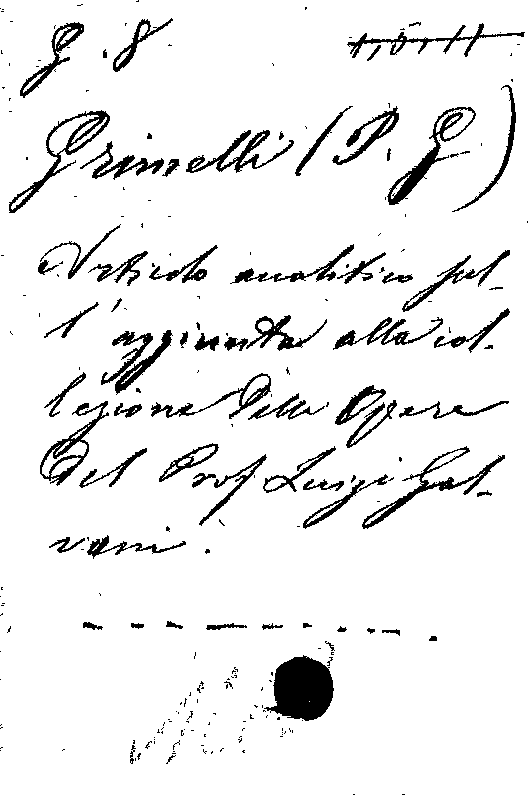 G. 8 1, 5, 11
Grimelli (P. G)
Articolo analitico sul-
l'aggiunta alla col-
lezione delle Opere
del Prof Luigi Gal-
vani.